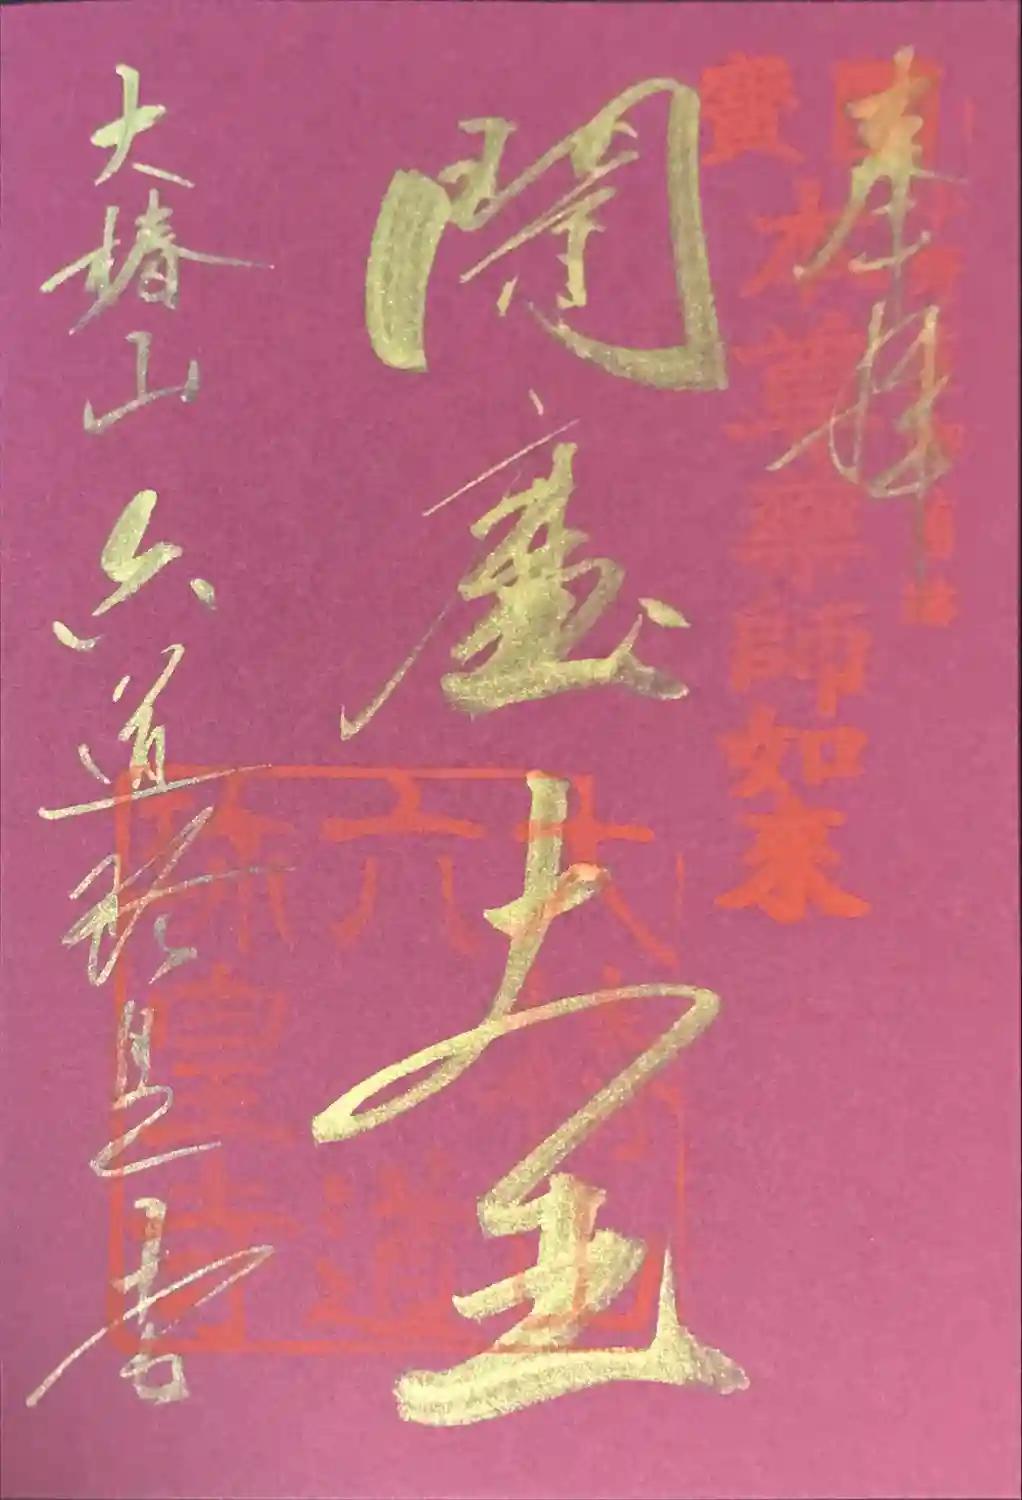 奉拝
本尊薬師如来
閻魔大王
大椿山 六道珍皇寺
大椿山
六道
珍皇寺